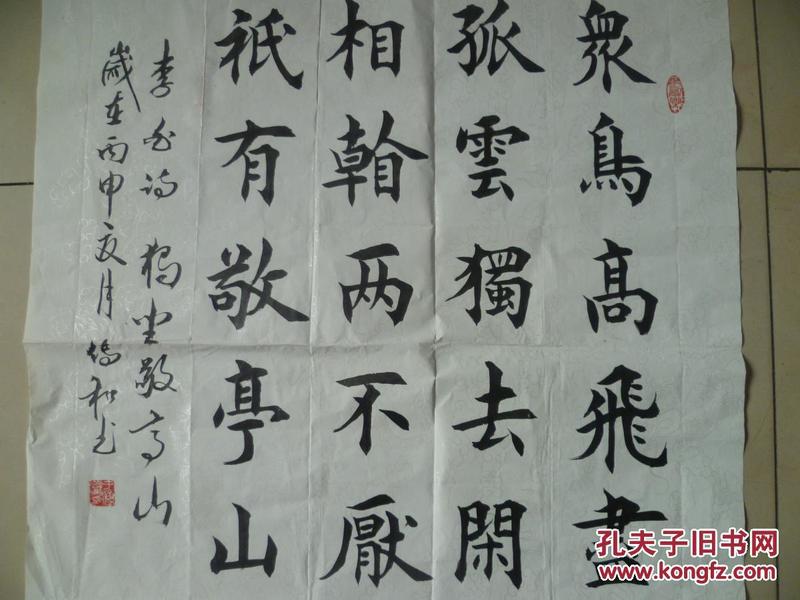 衆鳥髙飛盡
孤雲獨去閑
相看两不厭
祇有敬亭山
李白诗 独坐敬亭山
歲在丙申夏月 和书
孔夫子旧书网
www.kongfz.com